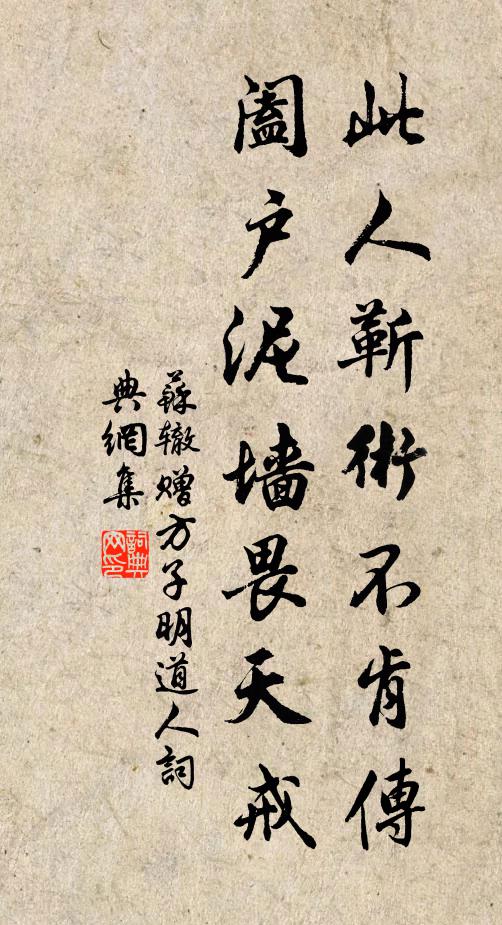 此人靳術不肯傳
阖户泥墻畏天戒
蘇辙贈方子明道人詞
典網集
詞典网印